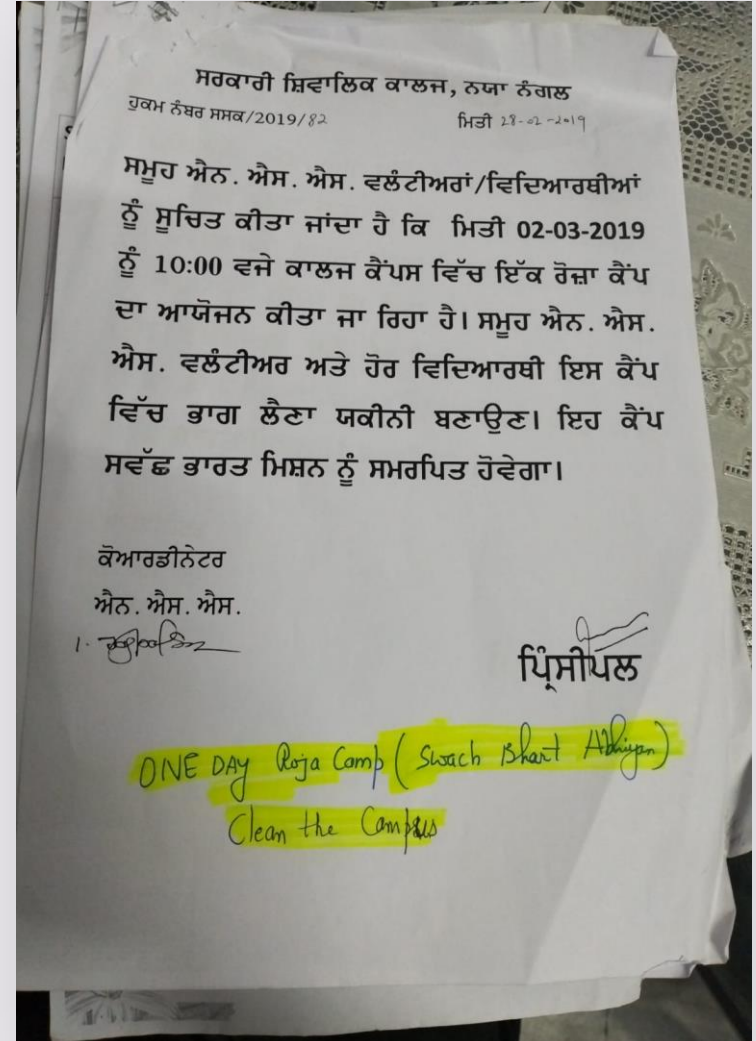 ਸਰਕਾਰੀ ਸ਼ਿਵਾਲਿਕ ਕਾਲਜ, ਨਯਾ ਨੰਗਲ
ਹੁਕਮ ਨੰਬਰ ਸਸਕ/2019/82 ਮਿਤੀ 28-02-2019
ਸਮੂਹ ਐਨ. ਐਸ. ਐਸ. ਵਲੰਟੀਅਰਾਂ/ਵਿਦਿਆਰਥੀਆਂ
ਨੂੰ ਸੂਚਿਤ ਕੀਤਾ ਜਾਂਦਾ ਹੈ ਕਿ ਮਿਤੀ 02-03-2019
ਨੂੰ 10:00 ਵਜੇ ਕਾਲਜ ਕੈਂਪਸ ਵਿੱਚ ਇੱਕ ਰੋਜ਼ਾ ਕੈਂਪ
ਦਾ ਆਯੋਜਨ ਕੀਤਾ ਜਾ ਰਿਹਾ ਹੈ। ਸਮੂਹ ਐਨ. ਐਸ.
ਐਸ. ਵਲੰਟੀਅਰ ਅਤੇ ਹੋਰ ਵਿਦਿਆਰਥੀ ਇਸ ਕੈਂਪ
ਵਿੱਚ ਭਾਗ ਲੈਣਾ ਯਕੀਨੀ ਬਣਾਉਣ। ਇਹ ਕੈਂਪ
ਸਵੱਛ ਭਾਰਤ ਮਿਸ਼ਨ ਨੂੰ ਸਮਰਪਿਤ ਹੋਵੇਗਾ।
ਕੋਆਰਡੀਨੇਟਰ
ਐਨ. ਐਸ. ਐਸ.
1.
ਪ੍ਰਿੰਸੀਪਲ
ONE DAY Roja Camp (Swach Bhart Abhiyan)
Clean the Campus